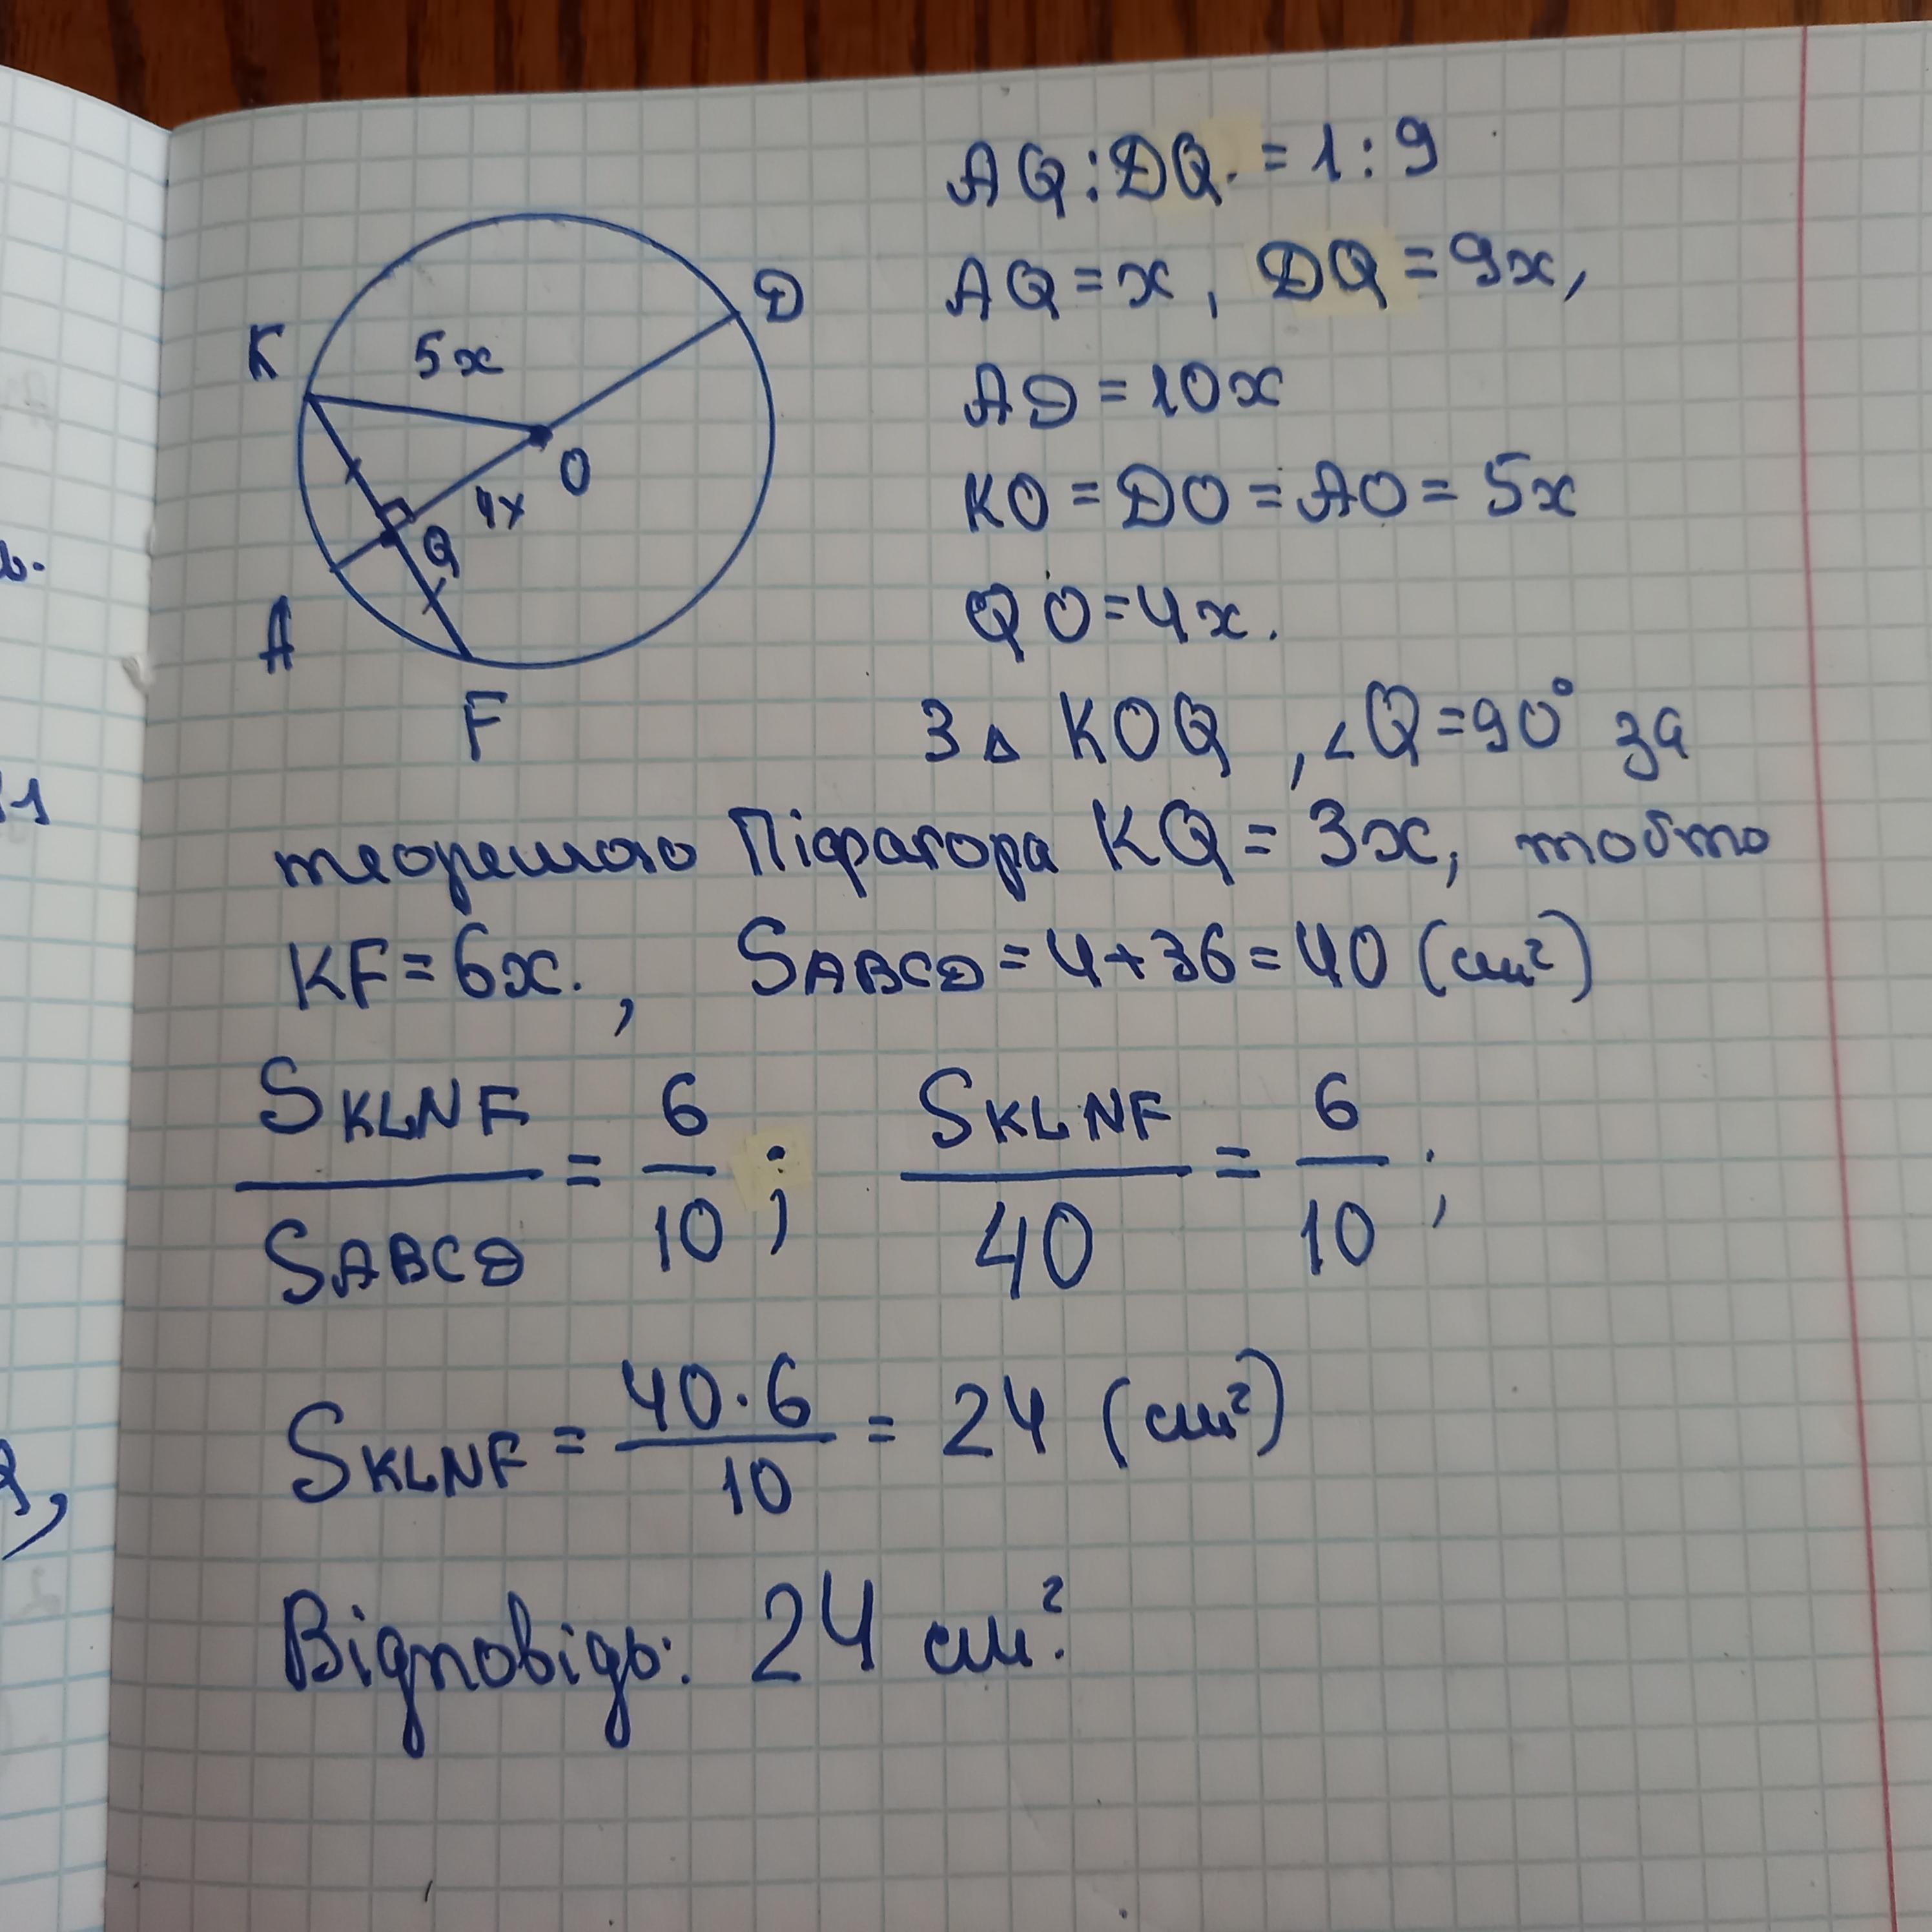 AQ:DQ = 1:9
AQ = x, DQ = 9x,
AD = 10x
KO = DO = AO = 5x
QO = 4x.
K
5x
D
O
4x
Q
A
F
З △ KOQ, ∠Q = 90° за
теоремою Піфагора KQ = 3x, тобто
KF = 6x., SABCD = 4+36 = 40 (см²)
SKLNF / SABCD = 6/10 ; SKLNF / 40 = 6/10 ;
SKLNF = 40·6 / 10 = 24 (см²)
Відповідь: 24 см².